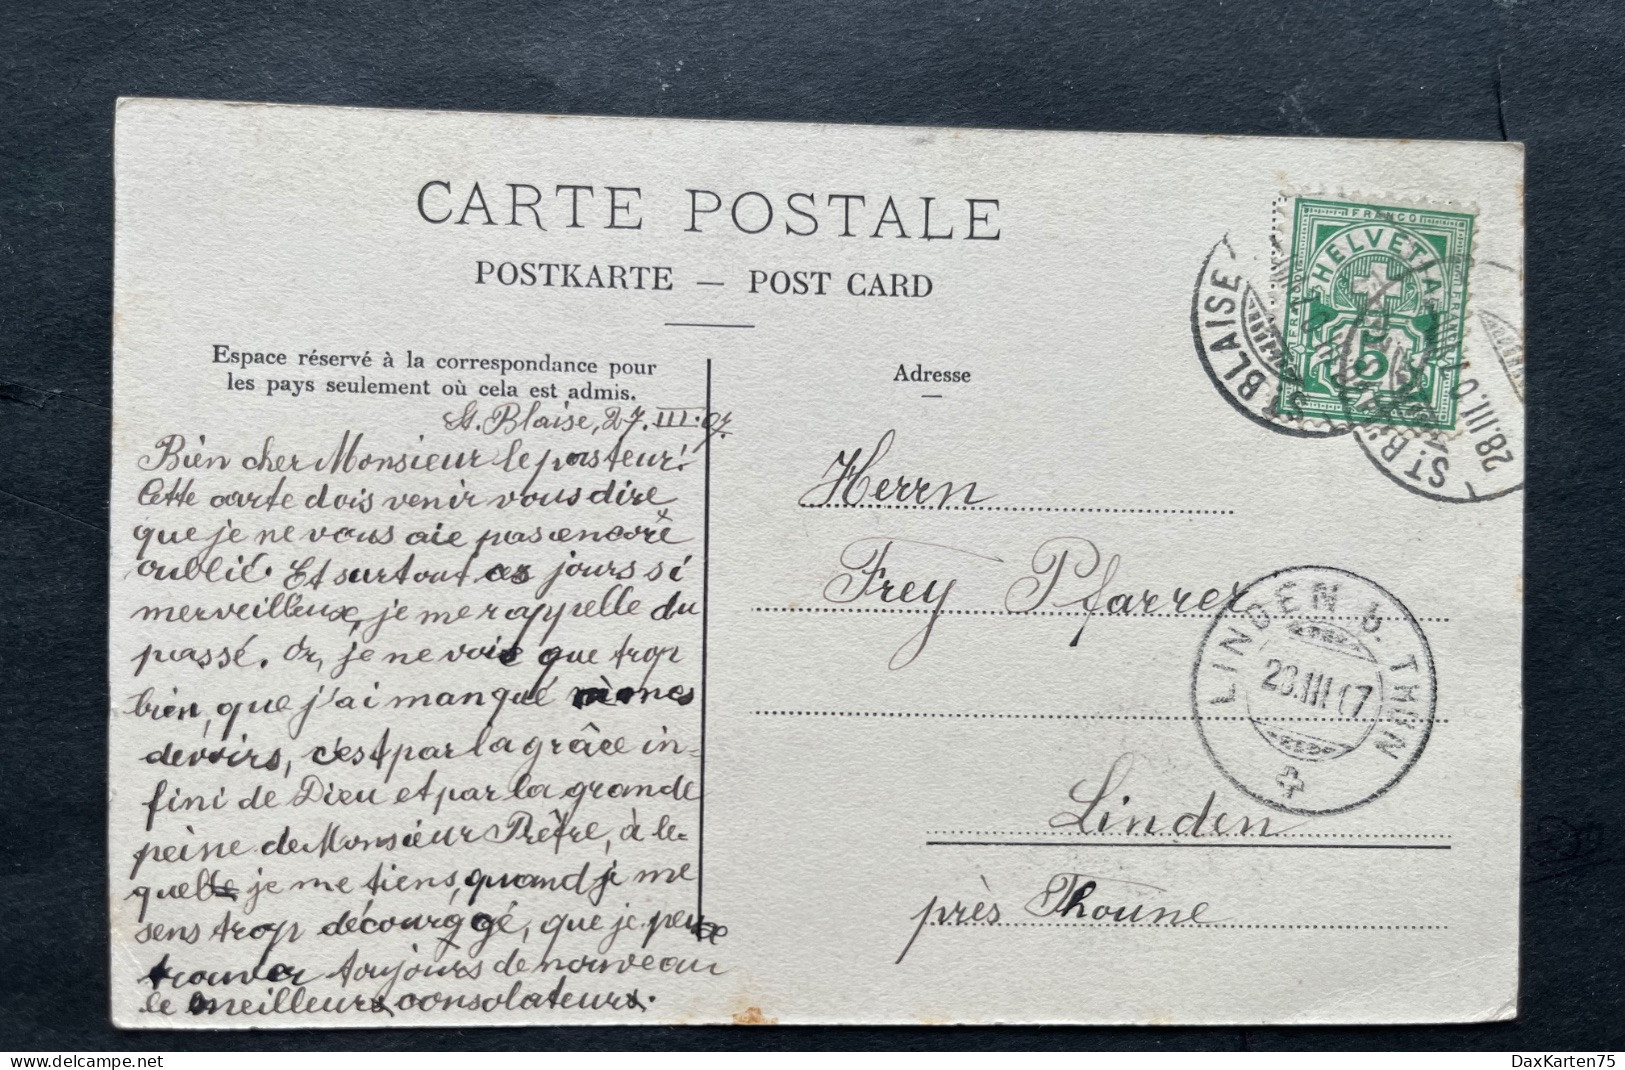 CARTE POSTALE
POSTKARTE — POST CARD
Espace réservé à la correspondance pour
les pays seulement où cela est admis.
Adresse
St. Blaise, 27. III. 07.
Bien cher Monsieur le pasteur!
Cette carte dois venir vous dire
que je ne vous aie pas encore
oublié. Et surtout ces jours si
merveilleux, je me rappelle du
passé. Or, je ne vois que trop
bien, que j'ai manqué à mes
devoirs, c'est par la grâce in-
fini de Dieu et par la grande
peine de Monsieur Prêtre, à le-
quelle je me tiens, quand je me
sens trop décourggé, que je peux
trouver toujours de nouveau
le meilleurs consolateurs.
Herrn
Frey Pfarrer
Linden
près Thoune
FRANCO
HELVETIA
FRANCO
FRANCO
5
ST. BLAISE
ST. B
28.III.07
LINDEN b. THUN
28.III.07
DaxKarten75